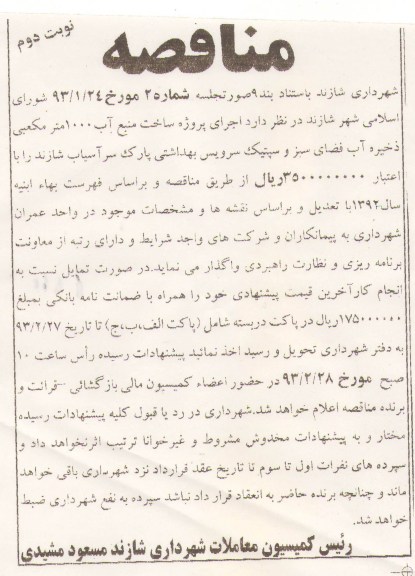 نوبت دوم
مناقصه
شهرداری شازند باستناد بند۹صورتجلسه شماره۲ مورخ ۹۳/۱/۲۴ شورای
اسلامی شهر شازند در نظر دارد اجرای پروژه ساخت منبع آب۱۰۰۰متر مکعبی
ذخیره آب فضای سبز و سپتیک سرویس بهداشتی پارک سرآسیاب شازند را با
اعتبار ۳۵۰۰۰۰۰۰۰۰ریال از طریق مناقصه و براساس فهرست بهاء ابنیه
سال۱۳۹۲با تعدیل و براساس نقشه ها و مشخصات موجود در واحد عمران
شهرداری به پیمانکاران و شرکت های واجد شرایط و دارای رتبه از معاونت
برنامه ریزی و نظارت راهبردی واگذار می نماید.در صورت تمایل نسبت به
انجام کارآخرین قیمت پیشنهادی خود را همراه با ضمانت نامه بانکی بمبلغ
۱۷۵۰۰۰۰۰۰ریال در پاکت دربسته شامل (پاکت الف،ب،ج) تا تاریخ ۹۳/۲/۲۷
به دفتر شهرداری تحویل و رسید اخذ نمائید پیشنهادات رسیده رأس ساعت ۱۰
صبح مورخ ۹۳/۲/۲۸ در حضور اعضاء کمیسیون مالی بازگشائی قرائت و
برنده مناقصه اعلام خواهد شد.شهرداری در رد یا قبول کلیه پیشنهادات رسیده
مختار و به پیشنهادات مخدوش مشروط و غیرخوانا ترتیب اثرنخواهد داد و
سپرده های نفرات اول تا سوم تا تاریخ عقد قرارداد نزد شهرداری باقی خواهد
ماند و چنانچه برنده حاضر به انعقاد قرار داد نباشد سپرده به نفع شهرداری ضبط
خواهد شد.
رئیس کمیسیون معاملات شهرداری شازند مسعود مشیدی